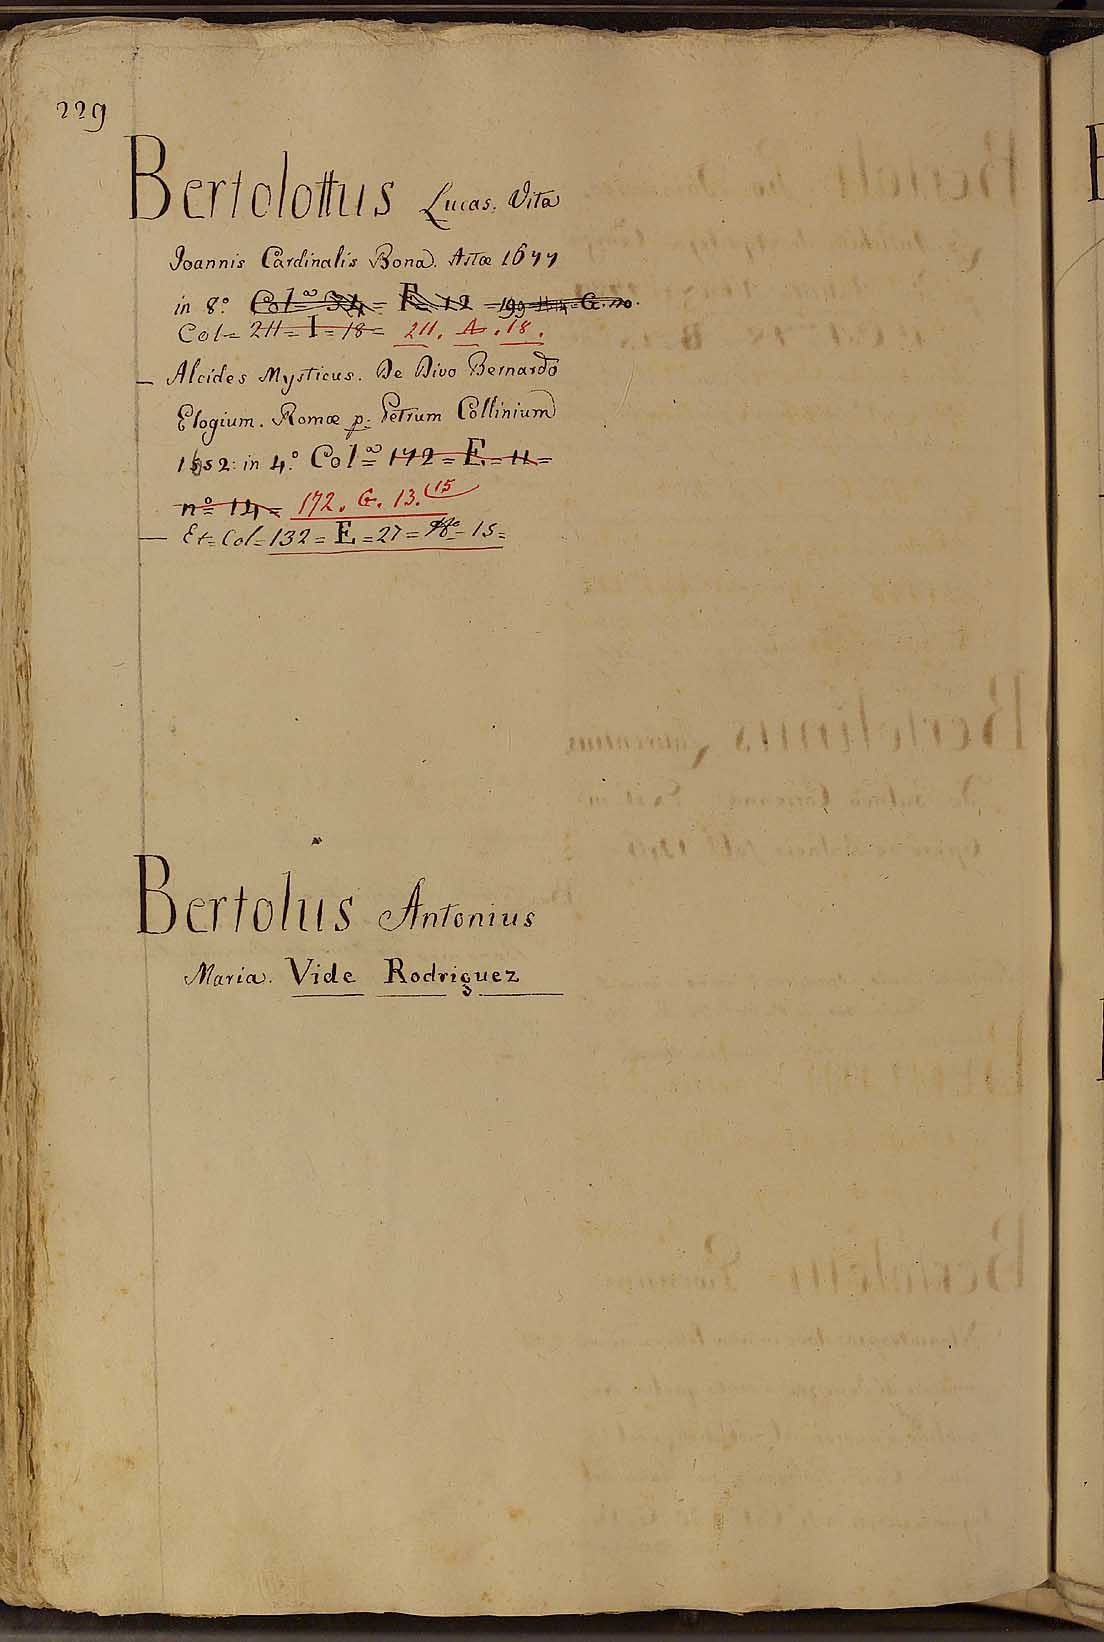 229
Bertolottus Lucas. Vita
Joannis Cardinalis Bona. Astæ 1677
in 8.º Colº = 34 = F = 12 = 199 = G. 20.
Col = 211 = I = 18 = 211. A. 18.
— Alcides Mysticus. De Divo Bernardo
Elogium. Romæ p. Petrum Collinium
1652: in 4.º Colº = 172 = E = 11 =
nº = 14 = 172. G. 13. 15
— Et = Col = 132 = E = 27 = = 15 =
Bertolus Antonius
Maria. Vide Rodriguez